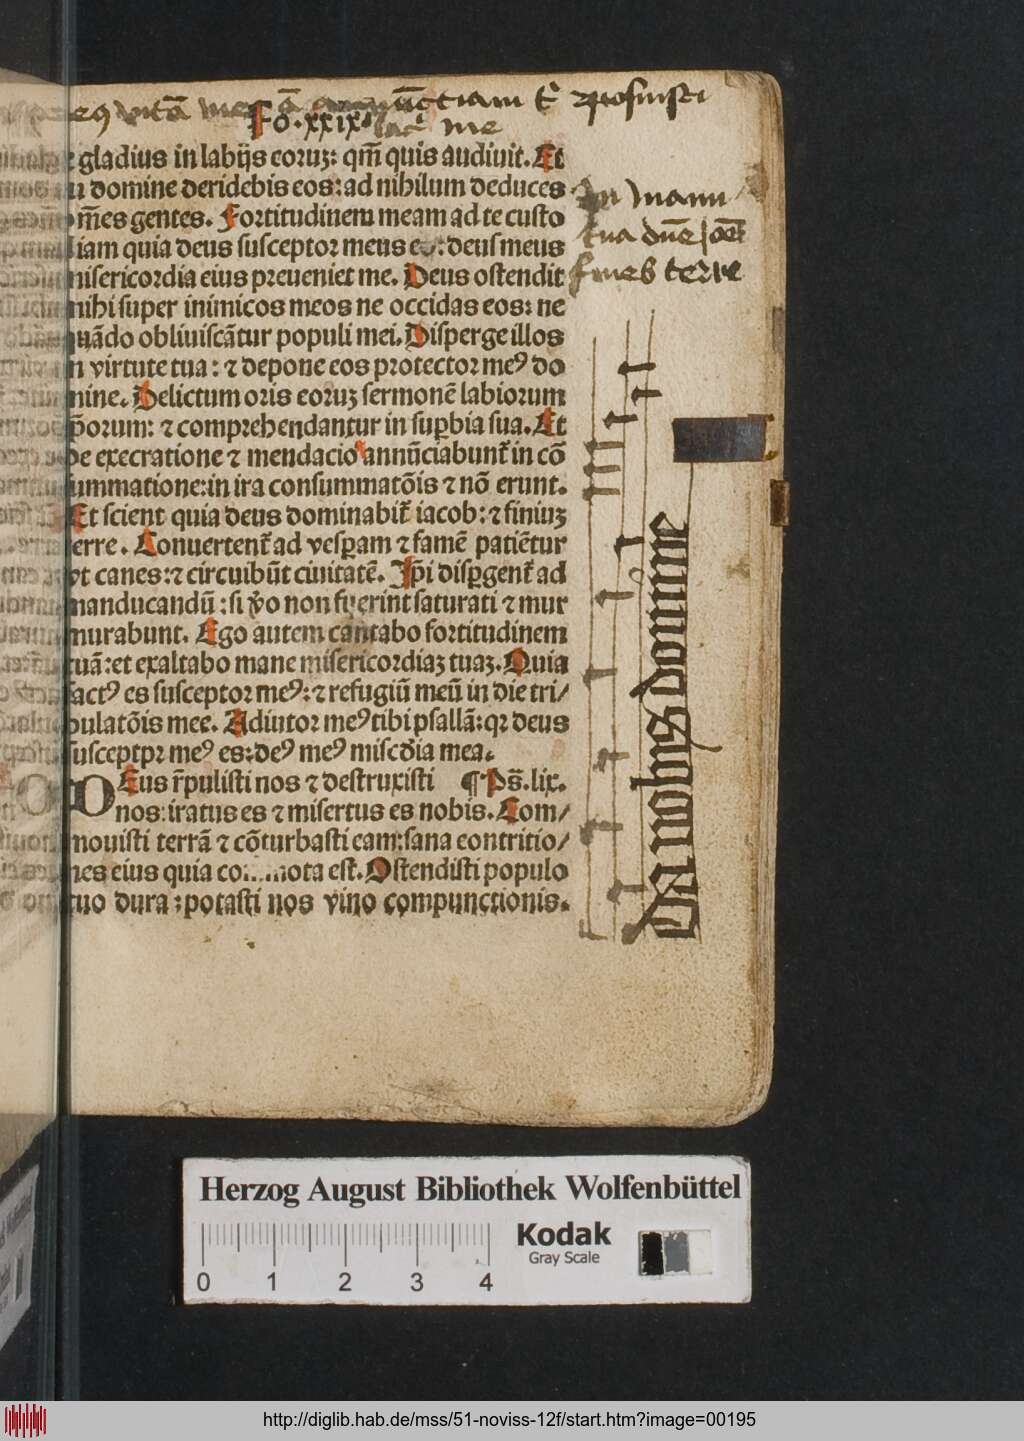 vitā annūctiam
Fo. xxix
gladius in labijs eoruꝫ: qm̄ quis audiuit. Et
domine deridebis eos: ad nihilum deduces
m̄es gentes. Fortitudinem meam ad te custo
iam quia deus susceptor meus es: deus meus
misericordia eius preueniet me. Deus ostendit
mihi super inimicos meos ne occidas eos: ne
quādo obliuiscātur populi mei. Disperge illos
in virtute tua: ⁊ depone eos protector meꝰ do
mine. Delictum oris eoruꝫ sermonē labiorum
ip̄orum: ⁊ comprehendantur in suꝑbia sua. Et
de execratione ⁊ mendacio annūciabunt᷑ in cō
summatione: in ira consummatōis ⁊ nō erunt.
Et scient quia deus dominabit᷑ iacob: ⁊ finiuꝫ
terre. Conuertent᷑ ad vesꝑam ⁊ famē patiētur
vt canes: ⁊ circuibūt ciuitatē. Ip̄i disꝑgent᷑ ad
manducandū: si v̄o non fuerint saturati ⁊ mur
murabunt. Ego autem cantabo fortitudinem
tuā: et exaltabo mane misericordiaꝫ tuaꝫ. Quia
factꝰ es susceptor meꝰ: ⁊ refugiū meū in die tri/
bulatōis mee. Adiutor meꝰ tibi psallā: qꝛ deus
susceptpr meꝰ es: deꝰ meꝰ misc̄dia mea.
DEus r̄pulisti nos ⁊ destruxisti ¶ Ps̄. lix.
nos: iratus es ⁊ misertus es nobis. Com/
mouisti terrā ⁊ cōturbasti eam: sana contritio/
nes eius quia commota est. Ostendisti populo
tuo dura: potasti nos vino compunctionis.
In manu
tua dn̄e
fines terre
Da nobis domine
Herzog August Bibliothek Wolfenbüttel
Kodak
Gray Scale
0 1 2 3 4
http://diglib.hab.de/mss/51-noviss-12f/start.htm?image=00195